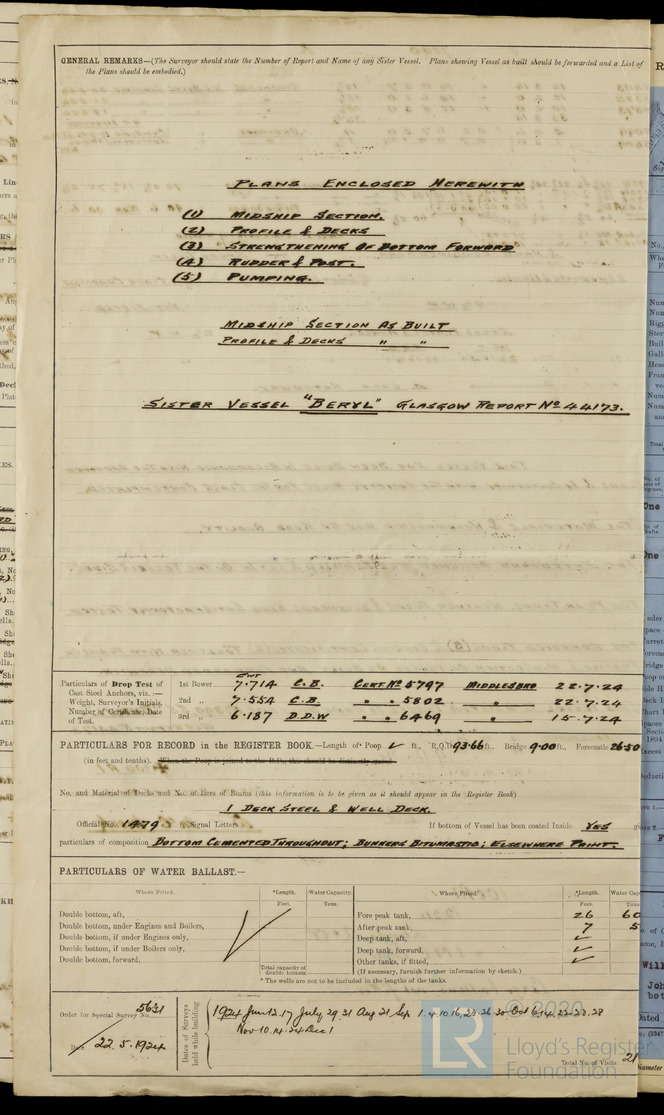 GENERAL REMARKS—(The Surveyor should state the Number of Report and Name of any Sister Vessel. Plans showing Vessel as built should be forwarded and a List of
the Plans should be embodied.)
PLANS ENCLOSED HEREWITH
(1) MIDSHIP SECTION.
(2) PROFILE & DECKS
(3) STRENGTHENING OF BOTTOM FORWARD
(4) RUDDER & POST.
(5) PUMPING.
MIDSHIP SECTION AS BUILT
PROFILE & DECKS " "
SISTER VESSEL "BERYL" GLASGOW REPORT No 44173.
Particulars of Drop Test of
Cast Steel Anchors, viz.:—
Weight, Surveyor's Initials,
Number of Certificate, Date
of Test.
CWT
1st Bower 7.714 C.B. CERT. No 5797 MIDDLESBRO 22.7.24
2nd „ 7.554 C.B. " " 5802 " 22.7.24
3rd „ 6.187 D.D.W " " 6469 " 15.7.24
PARTICULARS FOR RECORD in the REGISTER BOOK.—Length of Poop ✓ ft., R.Q.D. 93.66 ft., Bridge 9.00 ft., Forecastle 26.50
(in feet and tenths).
No. and Material of Decks and No. of Tiers of Beams (this information is to be given as it should appear in the Register Book)
1 DECK STEEL & WELL DECK.
Official No. 1479 ; Signal Letters If bottom of Vessel has been coated Inside YES
particulars of composition BOTTOM CEMENTED THROUGHOUT; BUNKERS BITUMASTIC; ELSEWHERE PAINT.
PARTICULARS OF WATER BALLAST.—
Where Fitted. *Length. Water Capacity. Where Fitted. *Length. Water Cap
Feet. Tons. Feet. Tons
Double bottom, aft,
Double bottom, under Engines and Boilers,
Double bottom, if under Engines only,
Double bottom, if under Boilers only,
Double bottom, forward,
Total capacity of
double bottom
Fore peak tank, 26 60
After peak tank, 7 5
Deep tank, aft, ✓
Deep tank, forward, ✓
Other tanks, if fitted, ✓
(If necessary, furnish further information by sketch.)
* The wells are not to be included in the lengths of the tanks.
Order for Special Survey No. 5631
22.5.1924
Dates of Surveys
held while building
1924 Jun 12.17 July 29.31 Aug 21 Sep 1.4.10.16.23.26.30 Oct 6.14.22.23.28
Nov 10.14.24 Dec 1
Total No. of Visits 21
LR
© 2020
Lloyd's Register
Foundation